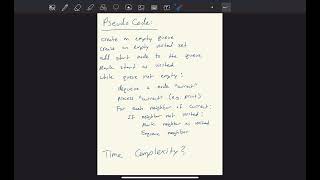 Pseudo Code:
create an empty queue
create an empty visited set
add start node to the queue
Mark start as visited
while queue not empty:
dequeue a node "current"
Process "current" (e.g. print)
For each neighbor of current:
If neighbor not visited:
Mark neighbor as visited
Enqueue neighbor
Time Complexity?